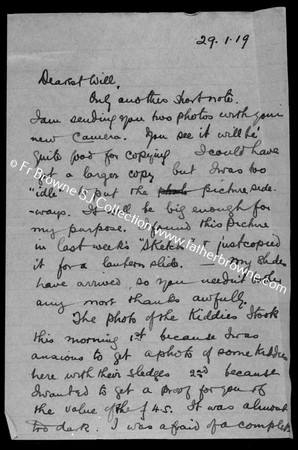 29.1.19
Dearest Will,
Only another short note.
I am sending you two photos with your
new camera. You see it will be
quite good for copying I could have
got a larger copy but I was too
"idle" to put the photo picture side-
-ways. It'll be big enough for
my purpose. I found this picture
in last week's "Sketch" & just copied
it for a lantern slide. My slides
have arrived, so you needn't
any more thanks awfully.
The photo of the Kiddies I took
this morning 1st because I was
anxious to get a photo of some Kiddies
here with their sledges 2nd because
I wanted to get a proof for you of
the value of the f 4.5. It was almost
too dark. I was afraid of a complete
© Fr Browne SJ Collection www.fatherbrowne.com